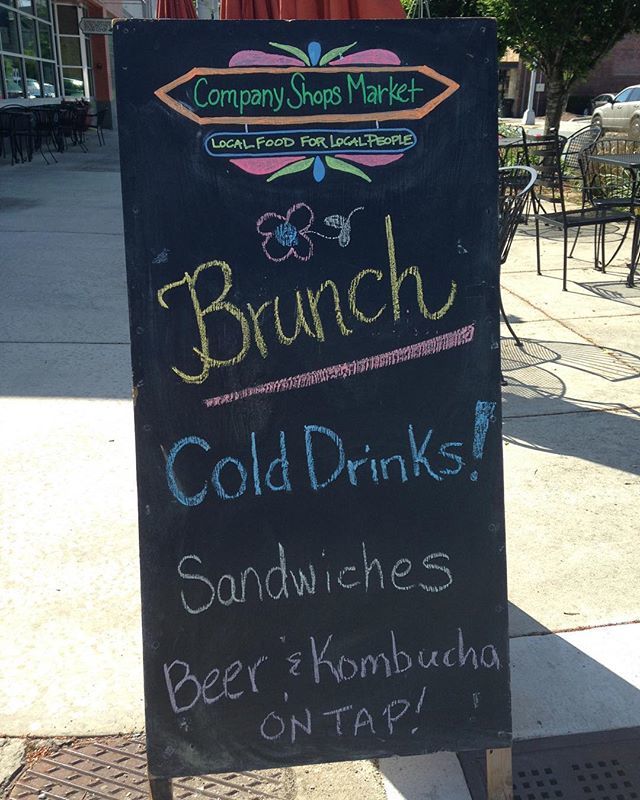 Company Shops Market
LOCAL FOOD FOR LOCAL PEOPLE
Brunch
Cold Drinks!
Sandwiches
Beer & Kombucha
ON TAP!